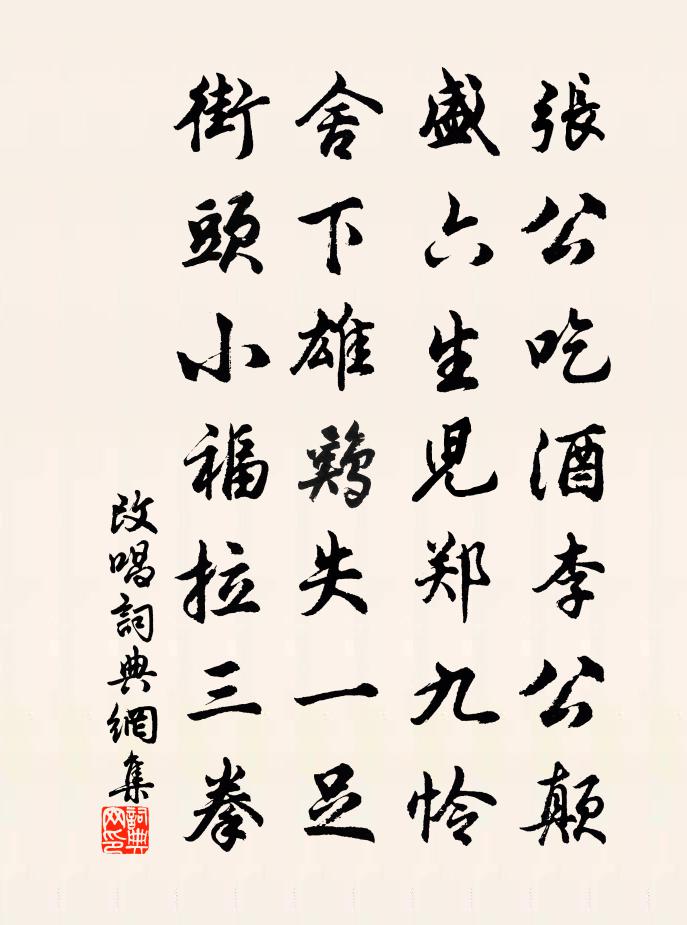 張公吃酒李公顛
盛六生児郑九怜
舍下雄鷄失一足
街頭小福拉三拳
改唱詞典網集
詞典网印